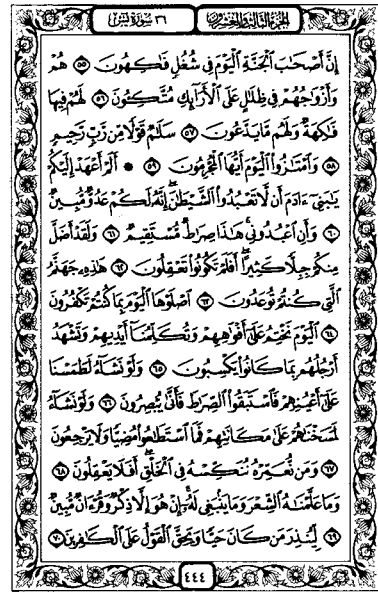 الجزء الثالث والعشرون ٣٦ سورة يس
إِنَّ أَصْحَابَ ٱلْجَنَّةِ ٱلْيَوْمَ فِي شُغُلٍ فَاكِهُونَ ٥٥ هُمْ
وَأَزْوَاجُهُمْ فِي ظِلَالٍ عَلَى ٱلْأَرَائِكِ مُتَّكِئُونَ ٥٦ لَهُمْ فِيهَا
فَاكِهَةٌ وَلَهُم مَّا يَدَّعُونَ ٥٧ سَلَامٌ قَوْلًا مِن رَّبٍّ رَّحِيمٍ
٥٨ وَٱمْتَازُوا ٱلْيَوْمَ أَيُّهَا ٱلْمُجْرِمُونَ ٥٩ * أَلَمْ أَعْهَدْ إِلَيْكُمْ
يَابَنِي ءَادَمَ أَن لَّا تَعْبُدُوا ٱلشَّيْطَانَ إِنَّهُ لَكُمْ عَدُوٌّ مُّبِينٌ
٦٠ وَأَنِ ٱعْبُدُونِي هَاذَا صِرَاطٌ مُّسْتَقِيمٌ ٦١ وَلَقَدْ أَضَلَّ
مِنكُمْ جِبِلًّا كَثِيرًا أَفَلَمْ تَكُونُوا تَعْقِلُونَ ٦٢ هَاذِهِ جَهَنَّمُ
ٱلَّتِي كُنتُمْ تُوعَدُونَ ٦٣ ٱصْلَوْهَا ٱلْيَوْمَ بِمَا كُنتُمْ تَكْفُرُونَ
٦٤ ٱلْيَوْمَ نَخْتِمُ عَلَى أَفْوَاهِهِمْ وَتُكَلِّمُنَا أَيْدِيهِمْ وَتَشْهَدُ
أَرْجُلُهُم بِمَا كَانُوا يَكْسِبُونَ ٦٥ وَلَوْ نَشَاءُ لَطَمَسْنَا
عَلَى أَعْيُنِهِمْ فَٱسْتَبَقُوا ٱلصِّرَاطَ فَأَنَّى يُبْصِرُونَ ٦٦ وَلَوْ نَشَاءُ
لَمَسَخْنَاهُمْ عَلَى مَكَانَتِهِمْ فَمَا ٱسْتَطَاعُوا مُضِيًّا وَلَا يَرْجِعُونَ
٦٧ وَمَن نُّعَمِّرْهُ نُنَكِّسْهُ فِي ٱلْخَلْقِ أَفَلَا يَعْقِلُونَ ٦٨
وَمَا عَلَّمْنَاهُ ٱلشِّعْرَ وَمَا يَنبَغِي لَهُ إِنْ هُوَ إِلَّا ذِكْرٌ وَقُرْءَانٌ مُّبِينٌ
٦٩ لِّيُنذِرَ مَن كَانَ حَيًّا وَيَحِقَّ ٱلْقَوْلُ عَلَى ٱلْكَافِرِينَ ٧٠
٤٤٤